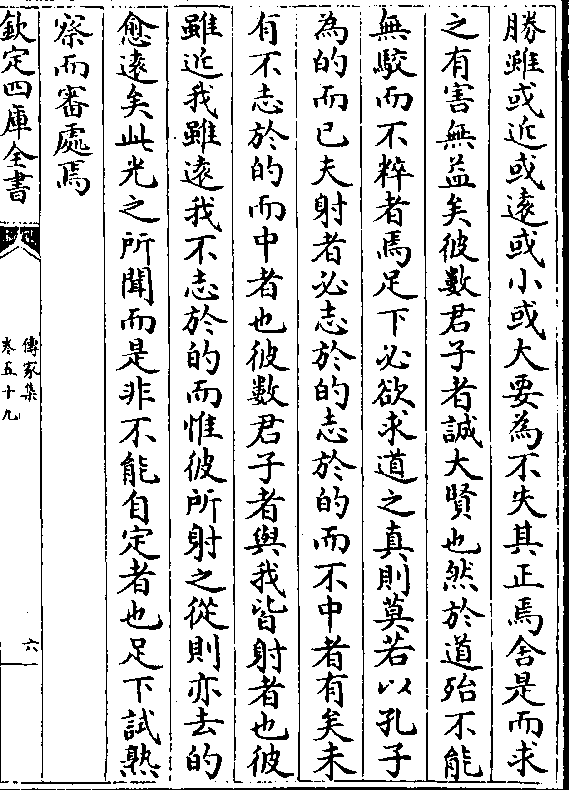 勝雖或近或遠或小或大要為不失其正焉舍是而求
之有害無益矣彼數君子者誠大賢也然於道殆不能
無駮而不粹者焉足下必欲求道之真則莫若以孔子
為的而已夫射者必志於的志於的而不中者有矣未
有不志於的而中者也彼數君子者與我皆射者也彼
雖近我雖遠我不志於的而惟彼所射之從則亦去的
愈遠矣此光之所聞而是非不能自定者也足下試熟
察而審處焉
欽定四庫全書
傳家集
卷五十九
六